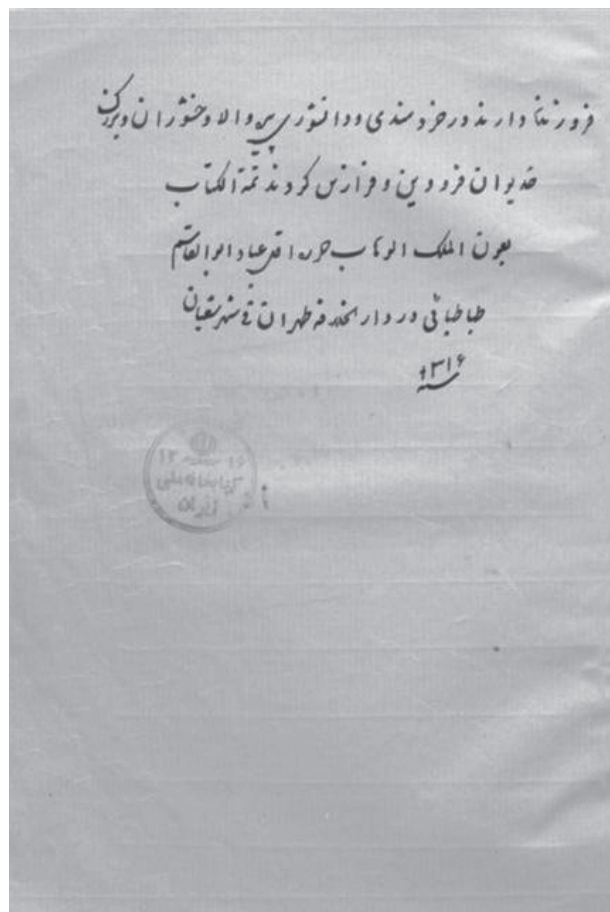 فروتنا دارند و در خردمندی و دانشوری پی والا و خشوران و بزرگ
خدیوان فرودین و فرازش کردند تمة الکتاب
بعون الملک الوهاب حرره اقل عباد ابوالقاسم
طباطبائی در دار الخلافه طهران فی شهر شعبان
سنه ۱۳۱۶
کتابخانه ملی
ایران